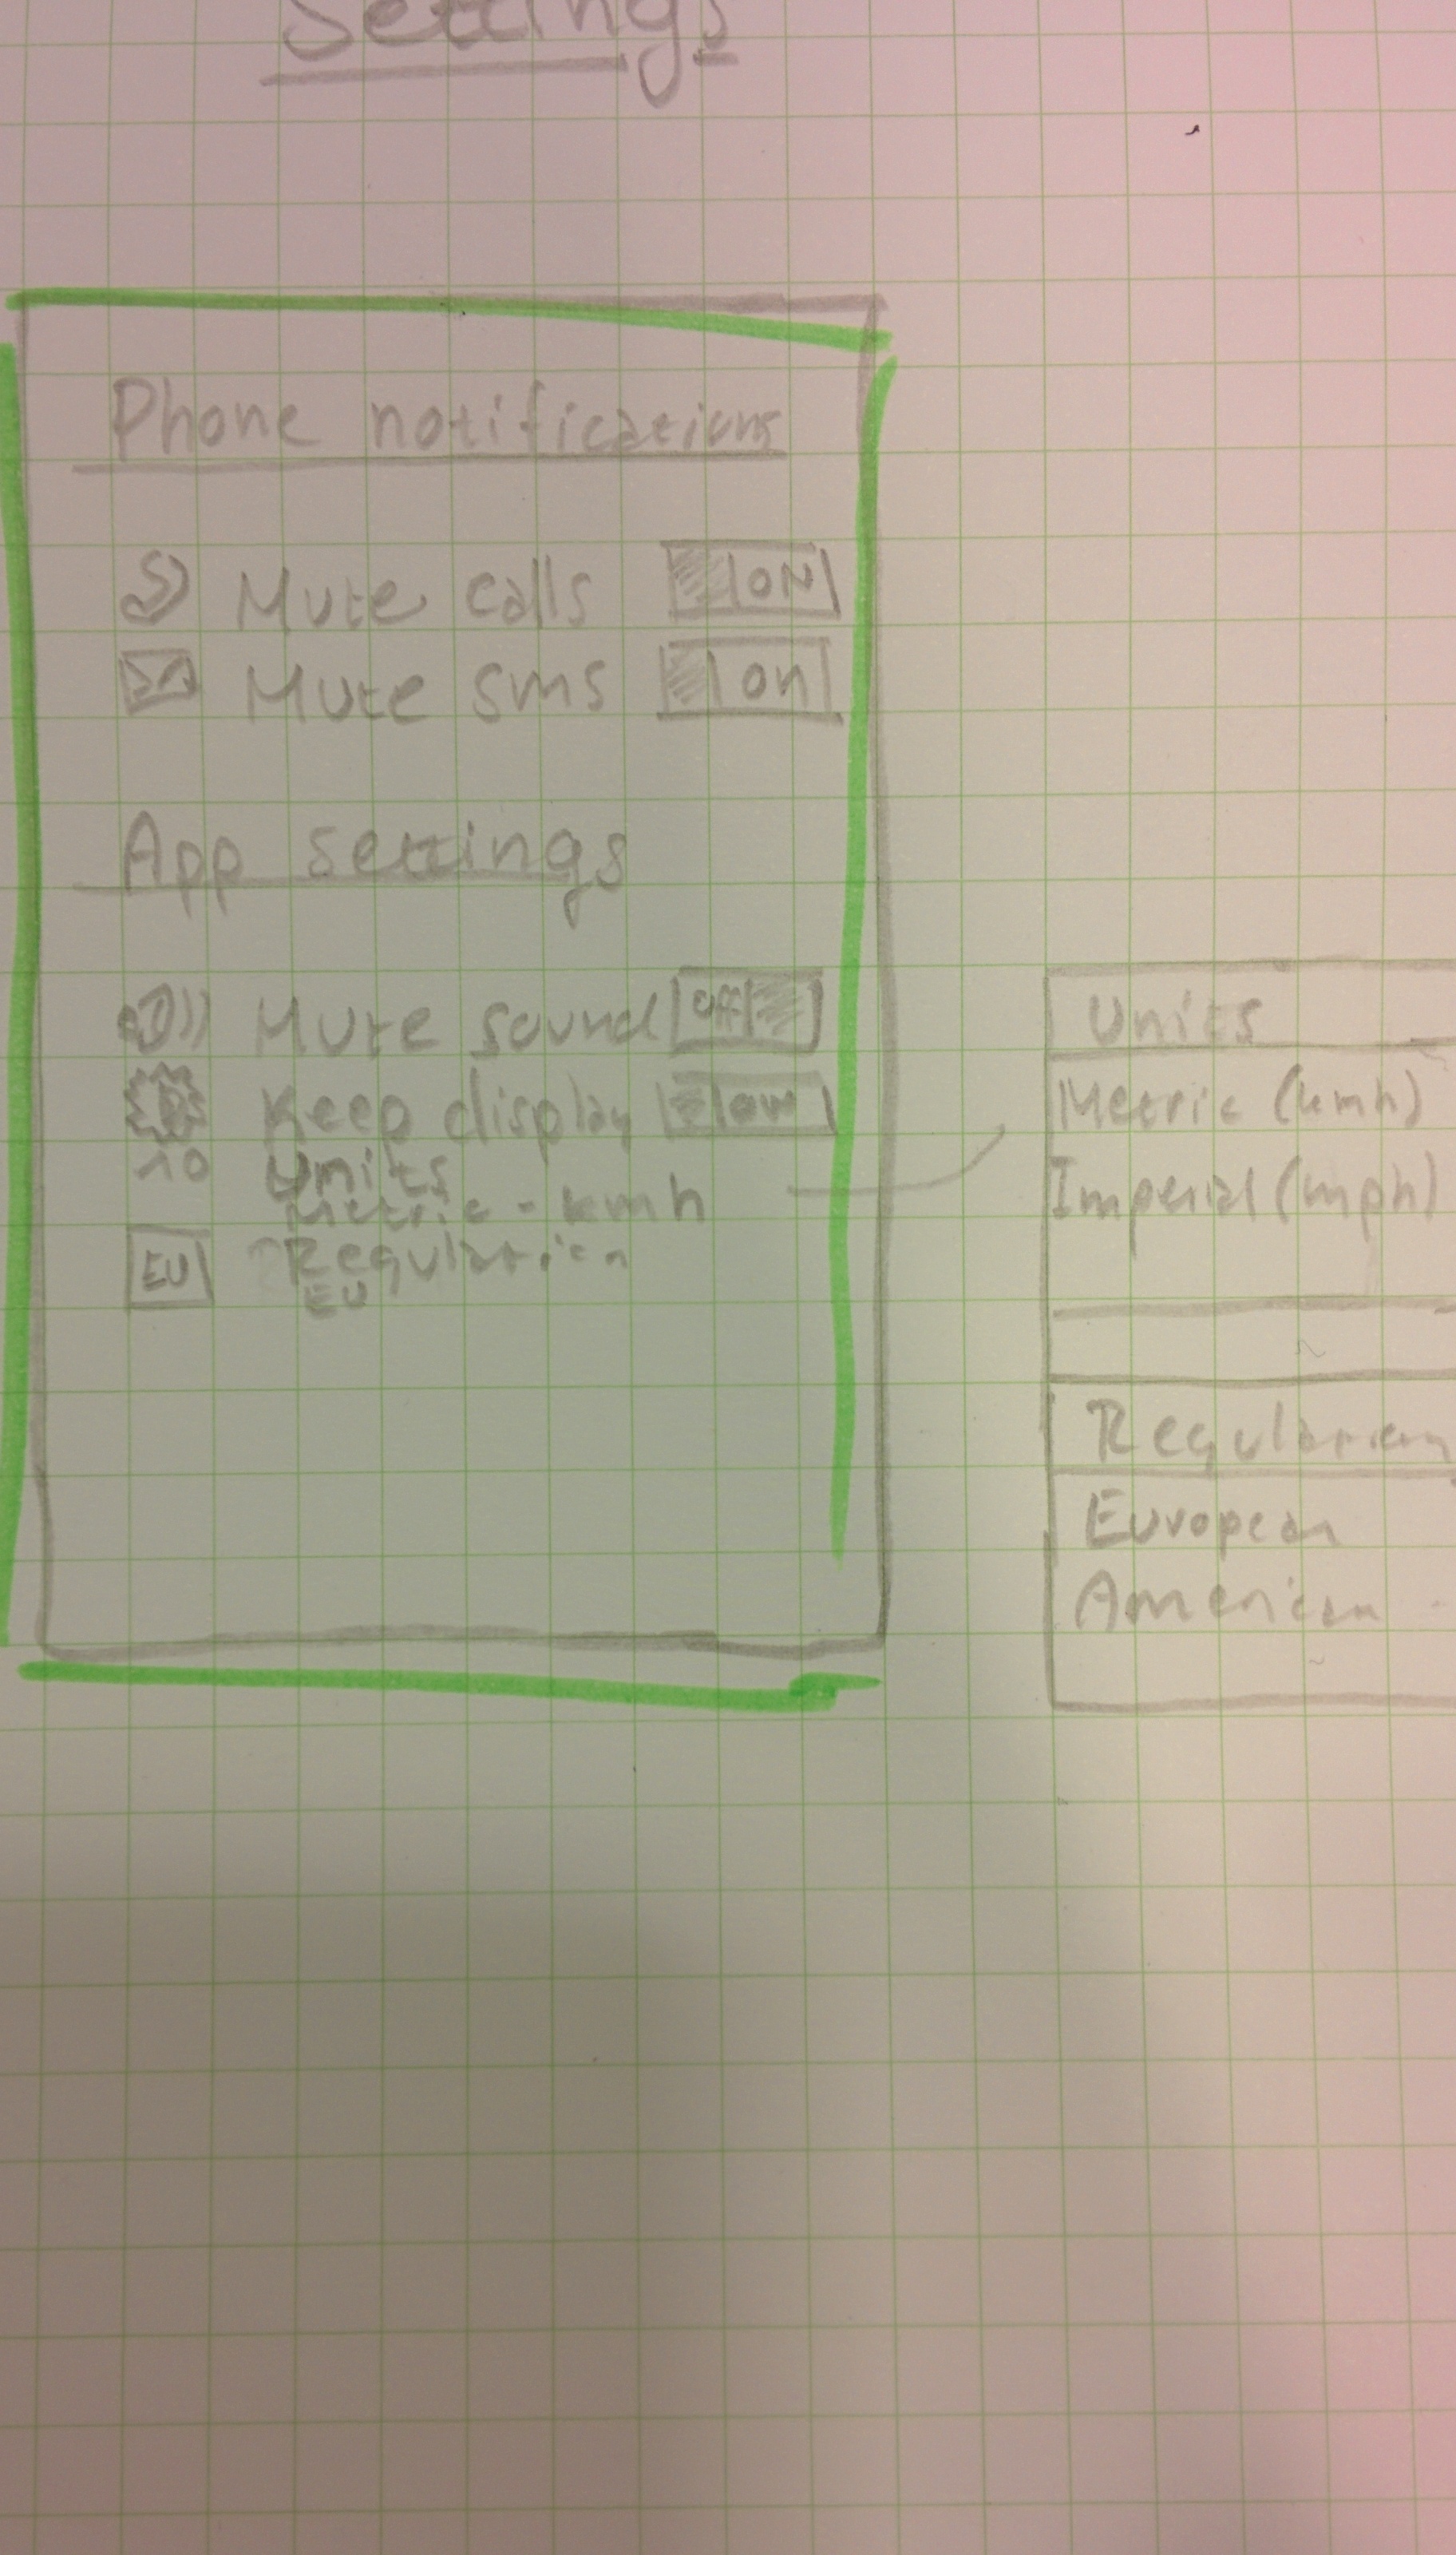 Settings
Phone notifications
Mute calls ON
Mute sms on
App settings
Mute sound Off
Keep display on
10 Units
Metric - kmh
EU Regulation
EU
Units
Metric (kmh)
Imperial (mph)
Regulation
European
American